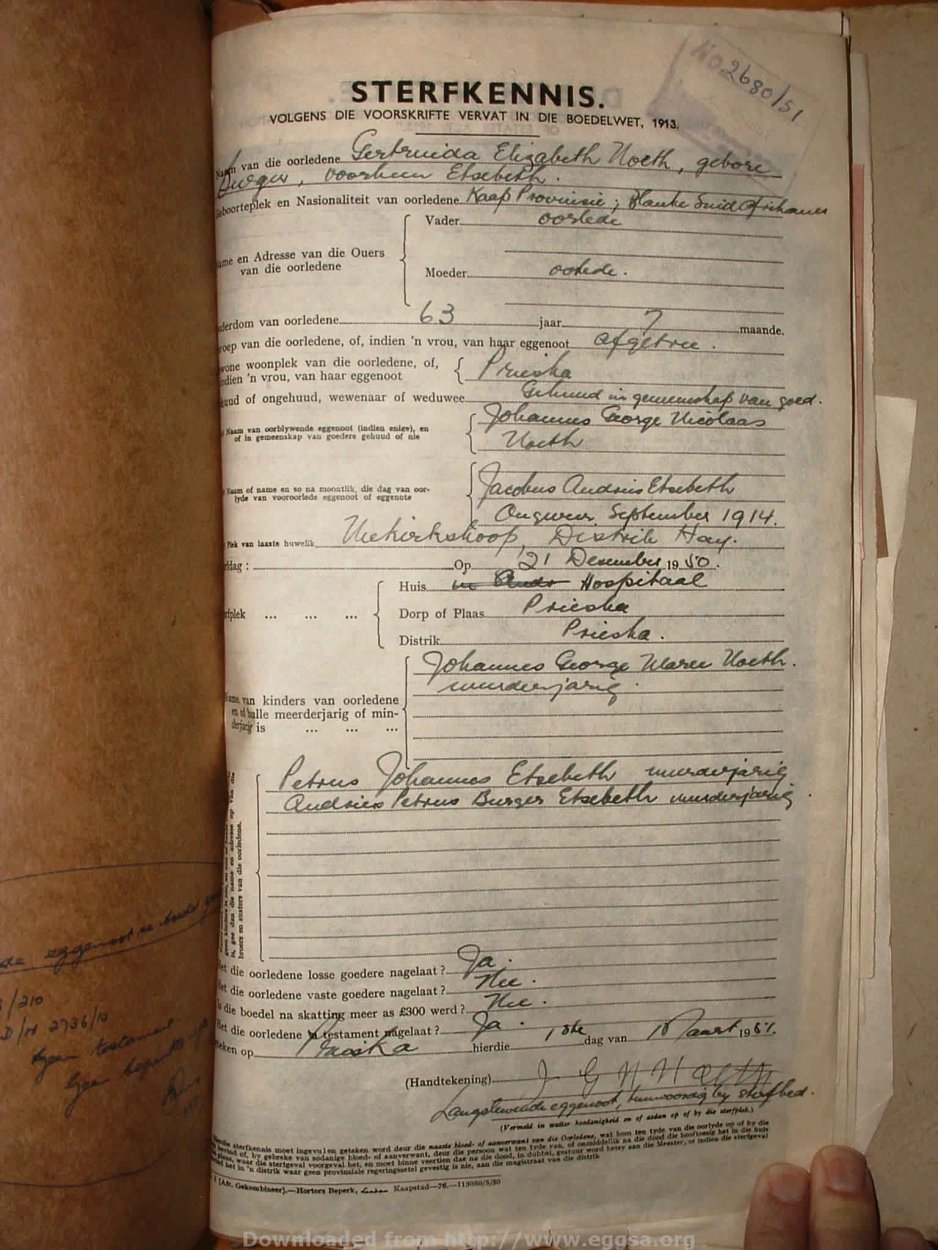 No 2680/51
STERFKENNIS.
VOLGENS DIE VOORSKRIFTE VERVAT IN DIE BOEDELWET, 1913.
Naam van die oorledene Gertruida Elizabeth Noeth, gebore
Burger, voorheen Etsebeth.
Geboorteplek en Nasionaliteit van oorledene Kaap Provinsie; Blanke Suid Afrikaner
Vader oorlede
Name en Adresse van die Ouers
van die oorledene
Moeder oorlede.
Ouderdom van oorledene 63 jaar 7 maande.
Beroep van die oorledene, of, indien 'n vrou, van haar eggenoot afgetree.
Gewone woonplek van die oorledene, of,
indien 'n vrou, van haar eggenoot Prieska
Gehuud of ongehuud, wewenaar of weduwee Gehuud in gemeenskap van goed.
Naam van oorblywende eggenoot (indien enige), en
of in gemeenskap van goedere gehuud of nie
Johannes George Nicolaas
Noeth
Naam of name en so na moontlik, die dag van oor-
lyde van vooroorlede eggenoot of eggenote
Jacobus Andries Etsebeth
Ongeveer September 1914.
Plek van laaste huwelik Niekerkshoop, Distrik Hay.
Sterfdag: Op 21 Desember 1950.
Huis Hospitaal
Sterfplek ... ... ...
Dorp of Plaas Prieska
Distrik Prieska.
Name van kinders van oorledene
en of hulle meerderjarig of min-
derjarig is ... ... ...
Johannes George Maree Noeth.
meerderjarig.
Petrus Johannes Etsebeth meerderjarig
Andries Petrus Burger Etsebeth meerderjarig
is, gee dan die name en adresse op van die
broers en susters van die oorledene.
Het die oorledene losse goedere nagelaat? Ja.
Het die oorledene vaste goedere nagelaat? Nee.
Is die boedel na skatting meer as £300 werd? Nee.
Het die oorledene 'n testament nagelaat? Ja.
Geteken op Prieska hierdie 1ste dag van Maart 1951.
(Handtekening) J G N Noeth
Langslewende eggenoot, teenwoordig by sterfbed.
(Vermeld in watter hoedanigheid en of sodan op of by die sterfplek.)
[Afr. Gekombineer].—Hortors Beperk, Kaapstad—76.—113080/5/50
de eggenoot se boedel
/210
D/N 2736/12
Geen testament.
Geen
Downloaded from http://www.eggsa.org